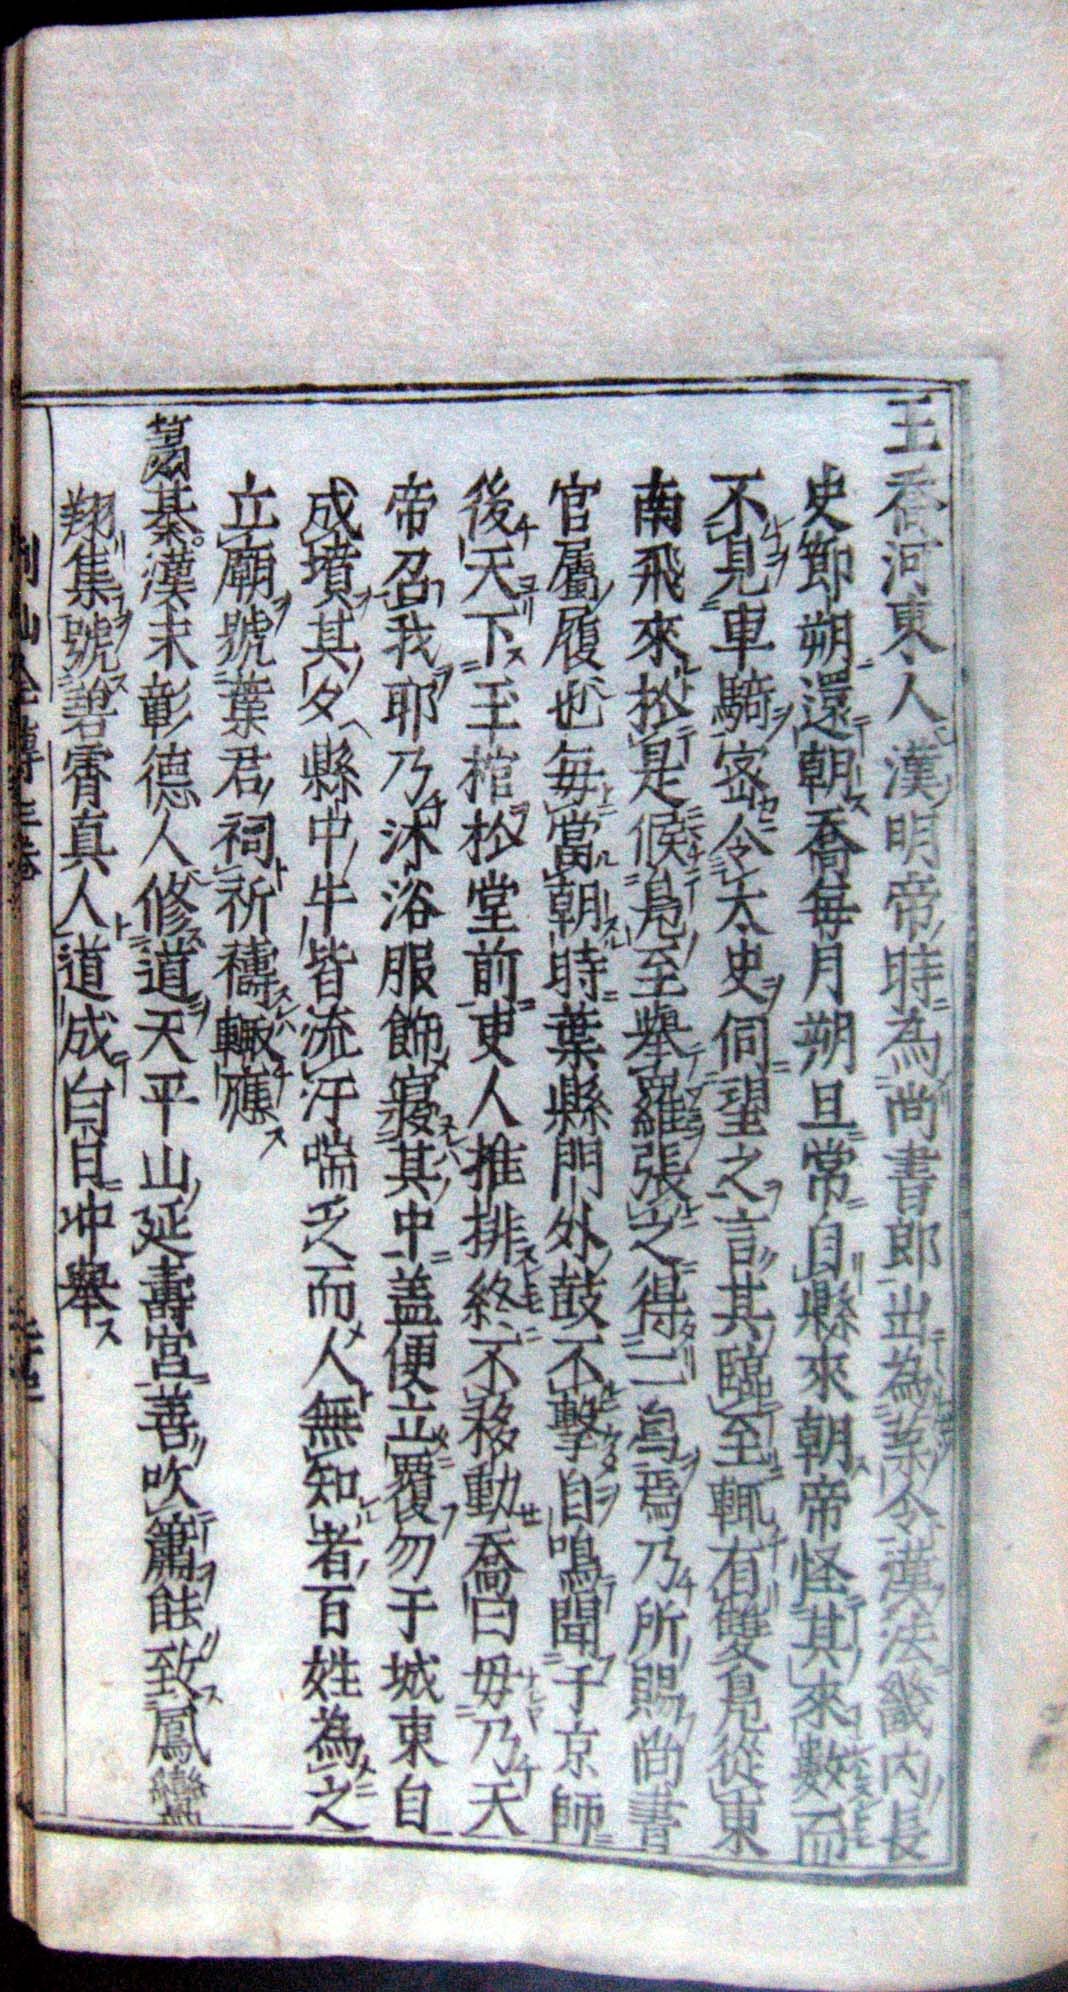 王喬河東人漢明帝時為尚書郎出為葉令漢法畿內長
史節朔還朝喬每月朔旦常自縣來朝帝怪其來數而
不見車騎密令太史伺望之言其臨至輒有雙鳧從東
南飛來於是候鳧至舉羅張之得一舄焉乃所賜尚書
官屬履也每當朝時葉縣門外鼓不擊自鳴聞于京師
後天下玉棺於堂前吏人推排終不移動喬曰毋乃天
帝召我耶乃沐浴服飾寢其中蓋便立覆勿于城東自
成墳其夕縣中牛皆流汗喘乏而人無知者百姓為之
立廟號葉君祠祈禱輒應
蕭綦漢末彰德人修道天平山延壽宮善吹簫能致鳳
翔集號碧霄真人道成白日冲舉